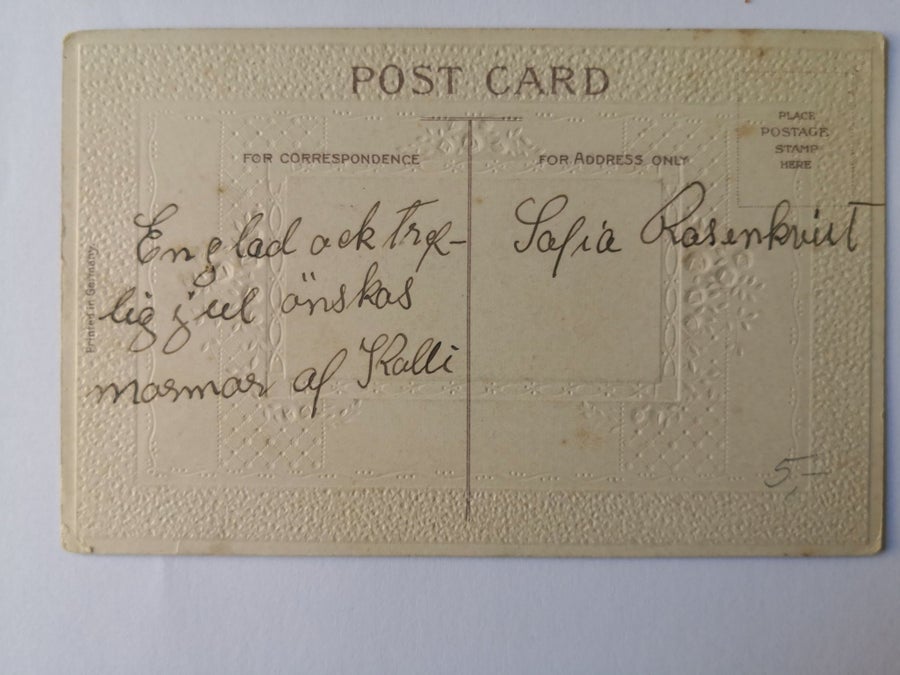 POST CARD
FOR CORRESPONDENCE
FOR ADDRESS ONLY
PLACE
POSTAGE
STAMP
HERE
En glad ock tref-
lig jul önskas
mormor af Kalli
Sofia Rosenkvist
Printed in Germany
5,-